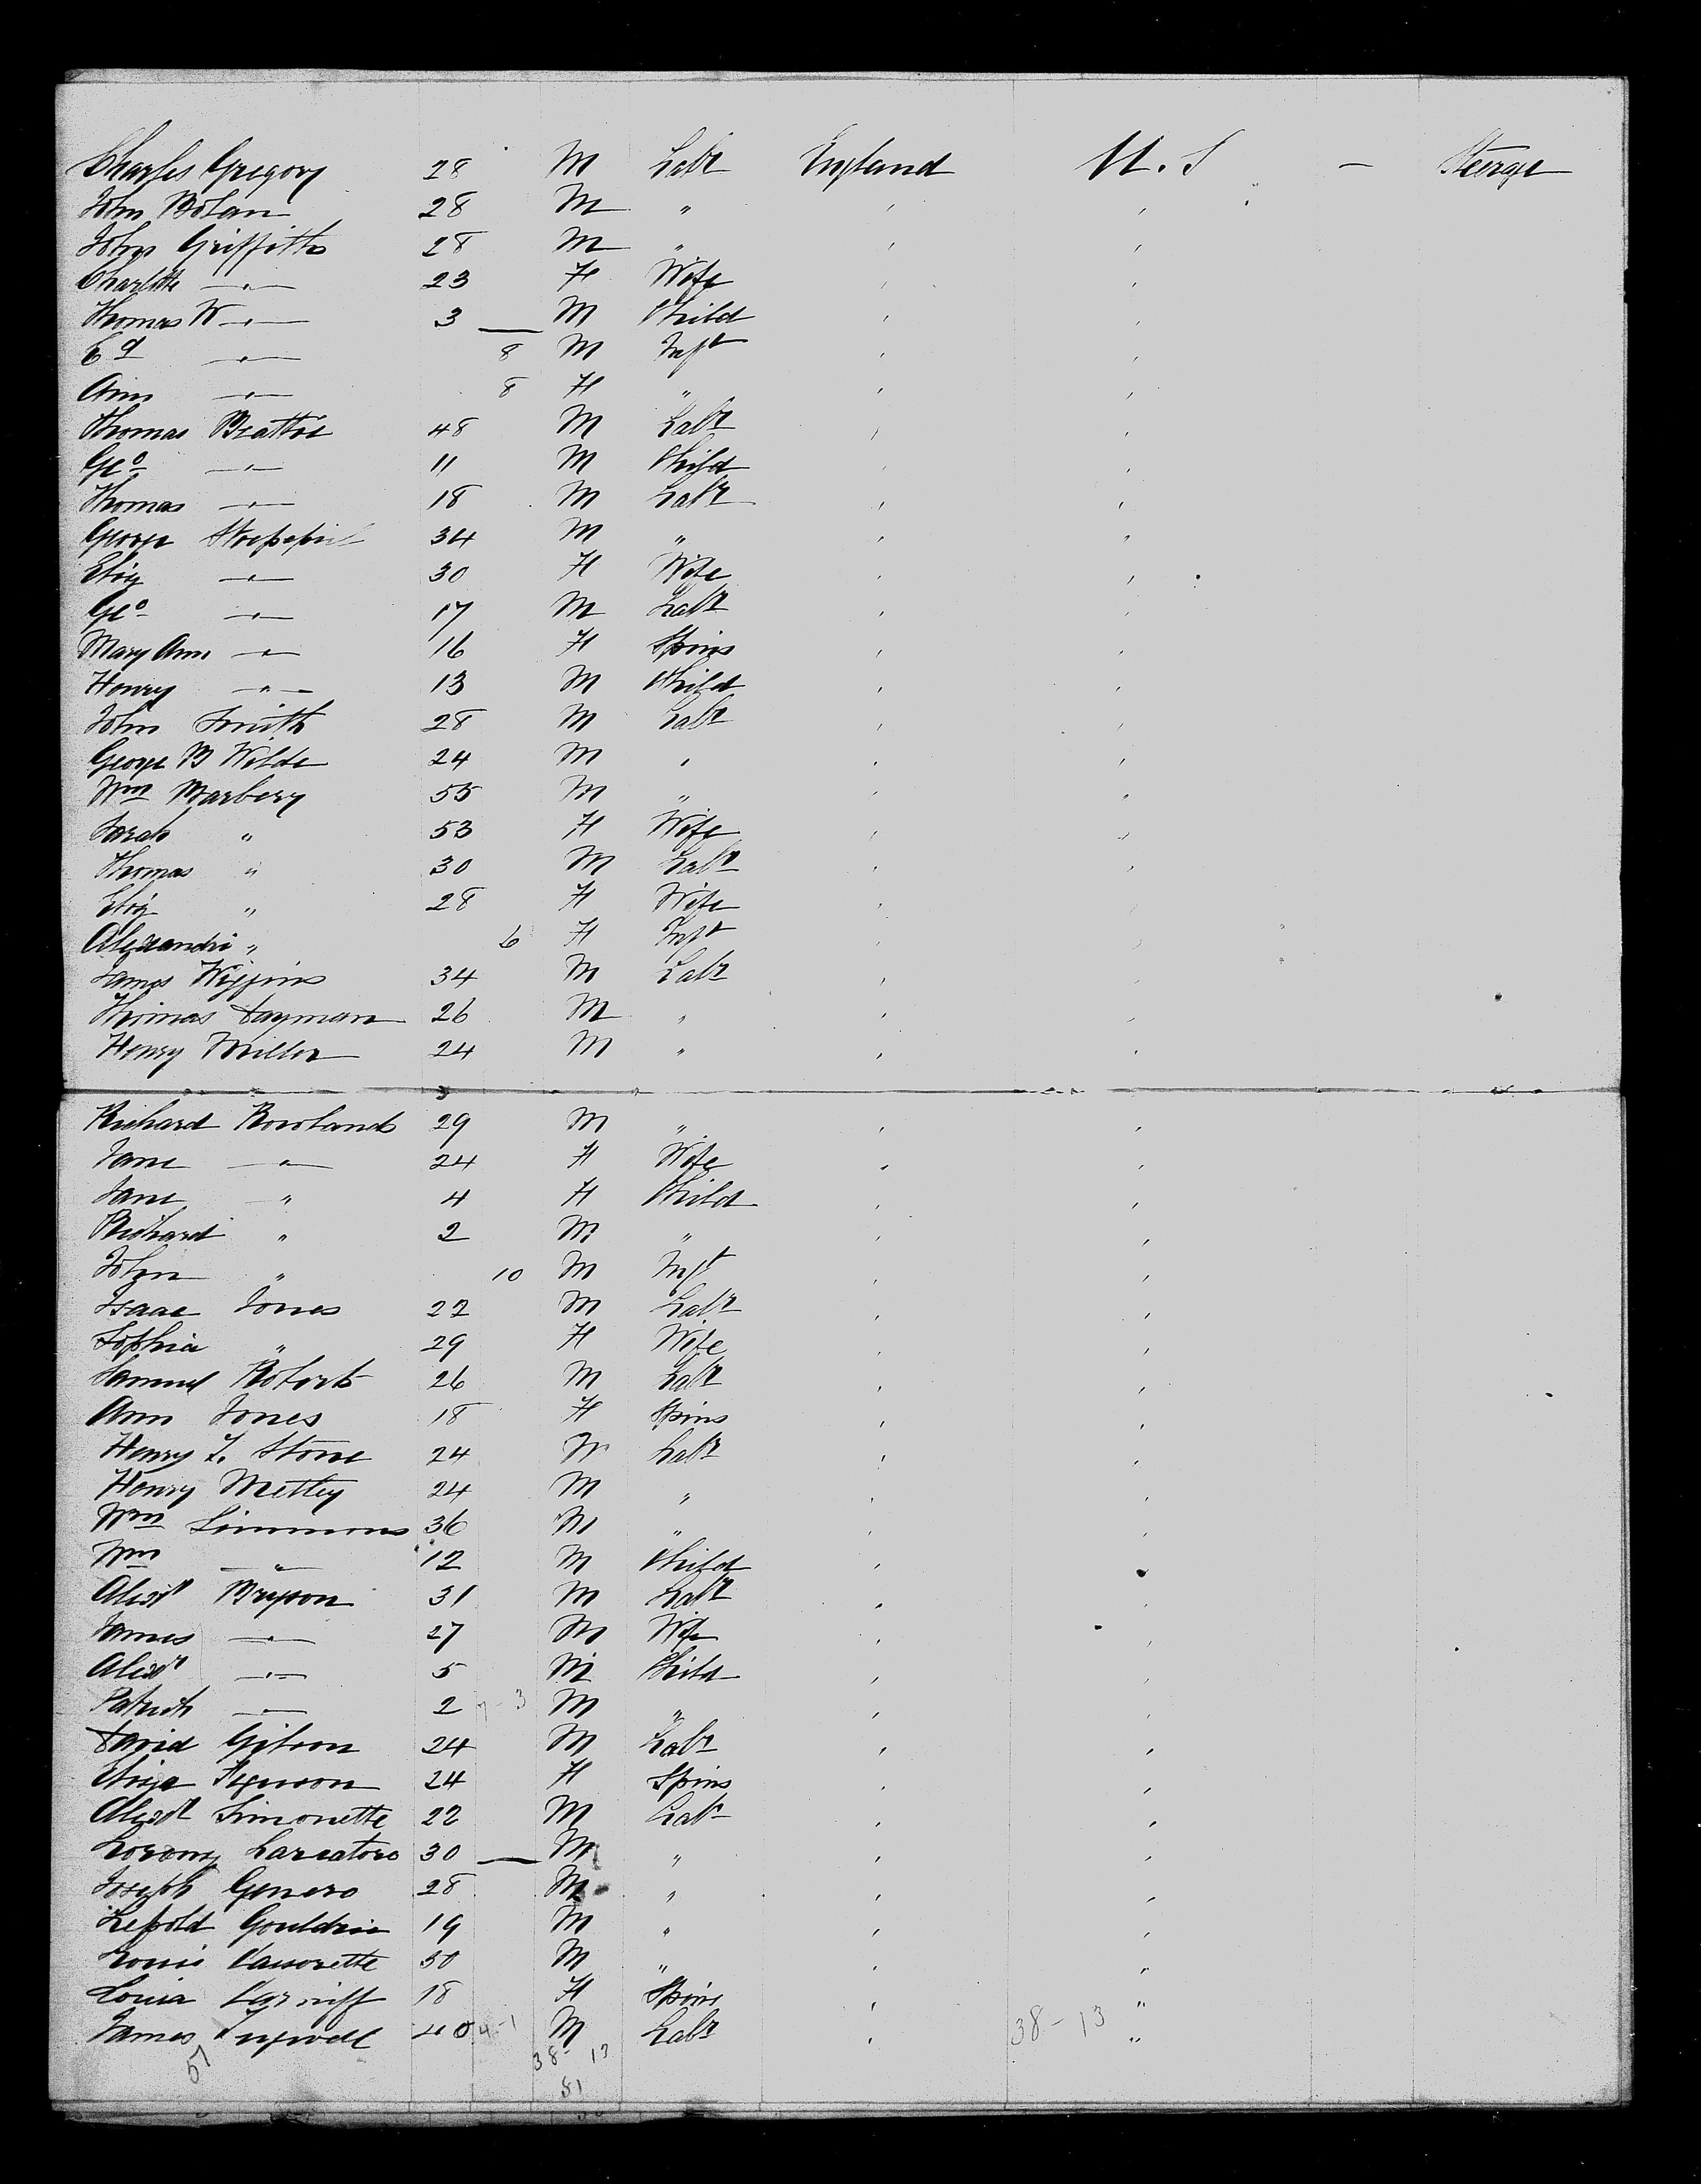 Charles Gregory 28 M Labr England U.S — Steerge
John Bolan 28 M " ' '
John Griffiths 28 M " ' '
Charlotte —"— 23 F Wife ' '
Thomas W —"— 3 M Child ' '
Ed —"— 8 M Inft ' '
Ann —"— 8 F " ' '
Thomas Beattie 48 M Labr ' '
Geo —"— 11 M Child ' '
Thomas —"— 18 M Labr ' '
George 34 M " ' "
Eliz —"— 30 F Wife ' '
Geo —"— 17 M Labr ' '
Mary Ann —"— 16 F Spins ' '
Henry —"— 13 M Child ' '
John Smith 28 M Labr ' '
George B Wilde 24 M " ' '
Wm Marbery 55 M " ' "
Sarah " 53 F Wife ' '
Thomas " 30 M Labr ' '
Eliz " 28 F Wife ' '
Alexandri " 6 F Inft ' '
James Wiggins 34 M Labr ' '
Thomas Dayman 26 M " ' '
Henry Miller 24 M " ' '
Richard Rowlands 29 M " ' '
Jane —"— 24 F Wife ' '
Jane " 4 F Child ' '
Richard " 2 M " ' '
John " 10 M Inft ' '
Isaac Jones 22 M Labr ' '
Sophia " 29 F Wife ' '
Samuel Roberts 26 M Labr ' '
Ann Jones 18 F Spins ' '
Henry T. Stone 24 M Labr ' '
Henry Metley 24 M " ' '
Wm Simmons 36 M " ' '
Wm —"— 12 M Child ' '
Alexr Bryson 31 M Labr ' '
James —"— 27 M Wife ' '
Alexr —"— 5 M Child ' '
Patrick —"— 2 7-3 M " ' '
David Gibson 24 M Labr ' '
Eliza 24 F Spins ' '
Alexr Simonette 22 M Labr ' '
30 M " ' '
Joseph Genero 28 M " ' '
Lepold Gouldrie 19 M " ' '
Louis 30 M " ' "
Louisa 18 F Spins ' "
James 40 4-1 M Labr ' 38-13 "
51 38- 13
51